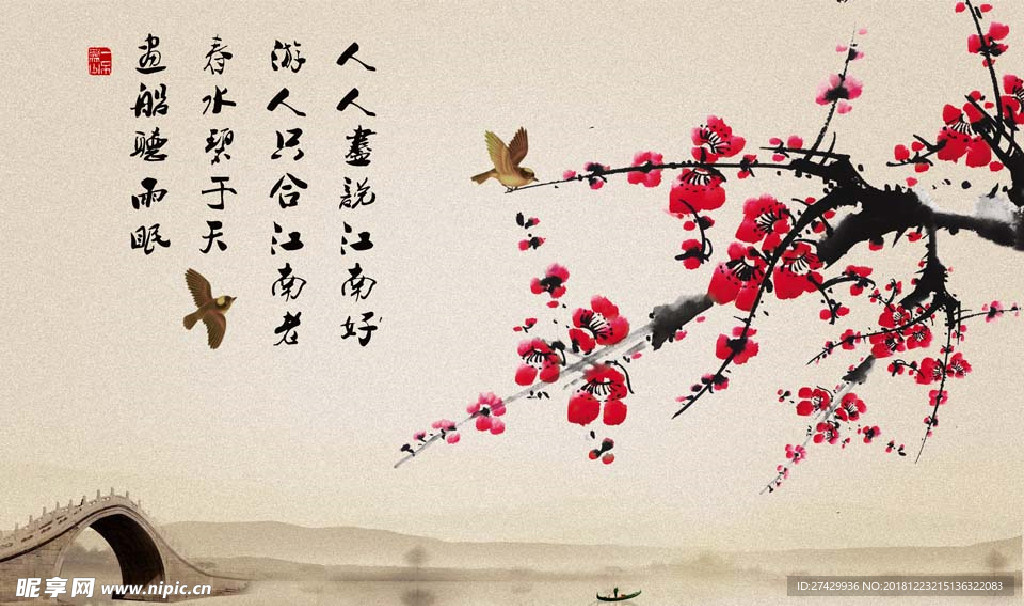 人人盡説江南好
游人只合江南老
春水碧于天
畫船聽雨眠
昵享网 www.nipic.cn
ID:27429936 NO:20181223215136322083